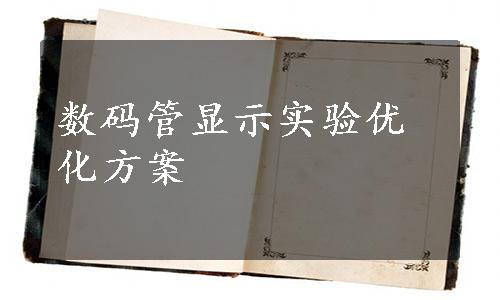 数码管显示实验优
化方案